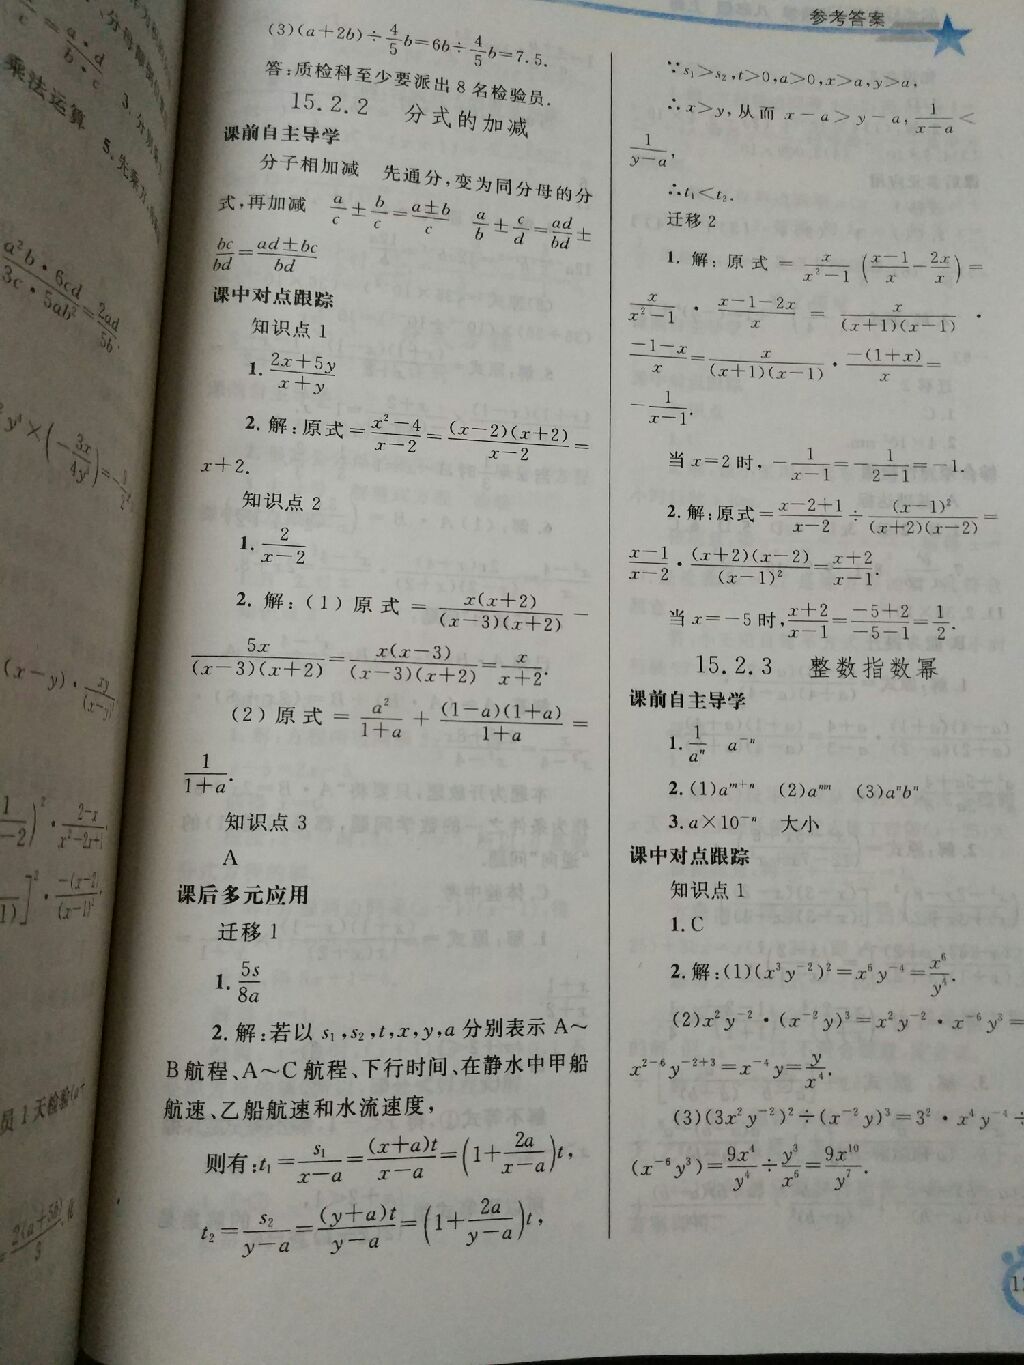 参考答案
(3)(a+2b)÷4/5b=6b÷4/5b=7.5.
答:质检科至少要派出8名检验员.
15.2.2 分式的加减
课前自主导学
分子相加减 先通分,变为同分母的分
式,再加减 a/c±b/c=(a±b)/c a/b±c/d=ad/bd±
bc/bd=(ad±bc)/bd
课中对点跟踪
知识点1
1.(2x+5y)/(x+y)
2.解:原式=(x²-4)/(x-2)=(x-2)(x+2)/(x-2)=
x+2.
知识点2
1.2/(x-2)
2.解:(1)原式=x(x+2)/((x-3)(x+2))-
5x/((x-3)(x+2))=x(x-3)/((x-3)(x+2))=x/(x+2).
(2)原式=a²/(1+a)+(1-a)(1+a)/(1+a)=
1/(1+a).
知识点3
A
课后多元应用
迁移1
1.5s/8a
2.解:若以s₁,s₂,t,x,y,a分别表示A~
B航程、A~C航程、下行时间、在静水中甲船
航速、乙船航速和水流速度,
则有:t₁=s₁/(x-a)=(x+a)t/(x-a)=(1+2a/(x-a))t,
t₂=s₂/(y-a)=(y+a)t/(y-a)=(1+2a/(y-a))t,
∵s₁>s₂,t>0,a>0,x>a,y>a,
∴x>y,从而x-a>y-a,1/(x-a)<
1/(y-a),
∴t₁<t₂.
迁移2
1.解:原式=x/(x²-1)((x-1)/x-2x/x)=
x/(x²-1)·(x-1-2x)/x=x/((x+1)(x-1))·
(-1-x)/x=x/((x+1)(x-1))·-(1+x)/x=
-1/(x-1).
当x=2时,-1/(x-1)=-1/(2-1)=-1.
2.解:原式=(x-2+1)/(x-2)÷(x-1)²/((x+2)(x-2))=
(x-1)/(x-2)·(x+2)(x-2)/(x-1)²=(x+2)/(x-1).
当x=-5时,(x+2)/(x-1)=(-5+2)/(-5-1)=1/2.
15.2.3 整数指数幂
课前自主导学
1.1/aⁿ a⁻ⁿ
2.(1)aᵐ⁺ⁿ (2)aⁿᵐ (3)aⁿbⁿ
3.a×10⁻ⁿ 大小
课中对点跟踪
知识点1
1.C
2.解:(1)(x³y⁻²)²=x⁶y⁻⁴=x⁶/y⁴.
(2)x²y⁻²·(x⁻²y)³=x²y⁻²·x⁻⁶y³=
x²⁻⁶y⁻²⁺³=x⁻⁴y=y/x⁴.
(3)(3x²y⁻²)²÷(x⁻²y)³=3²·x⁴y⁻⁴÷
(x⁻⁶y³)=9x⁴/y⁴÷y³/x⁶=9x¹⁰/y⁷.